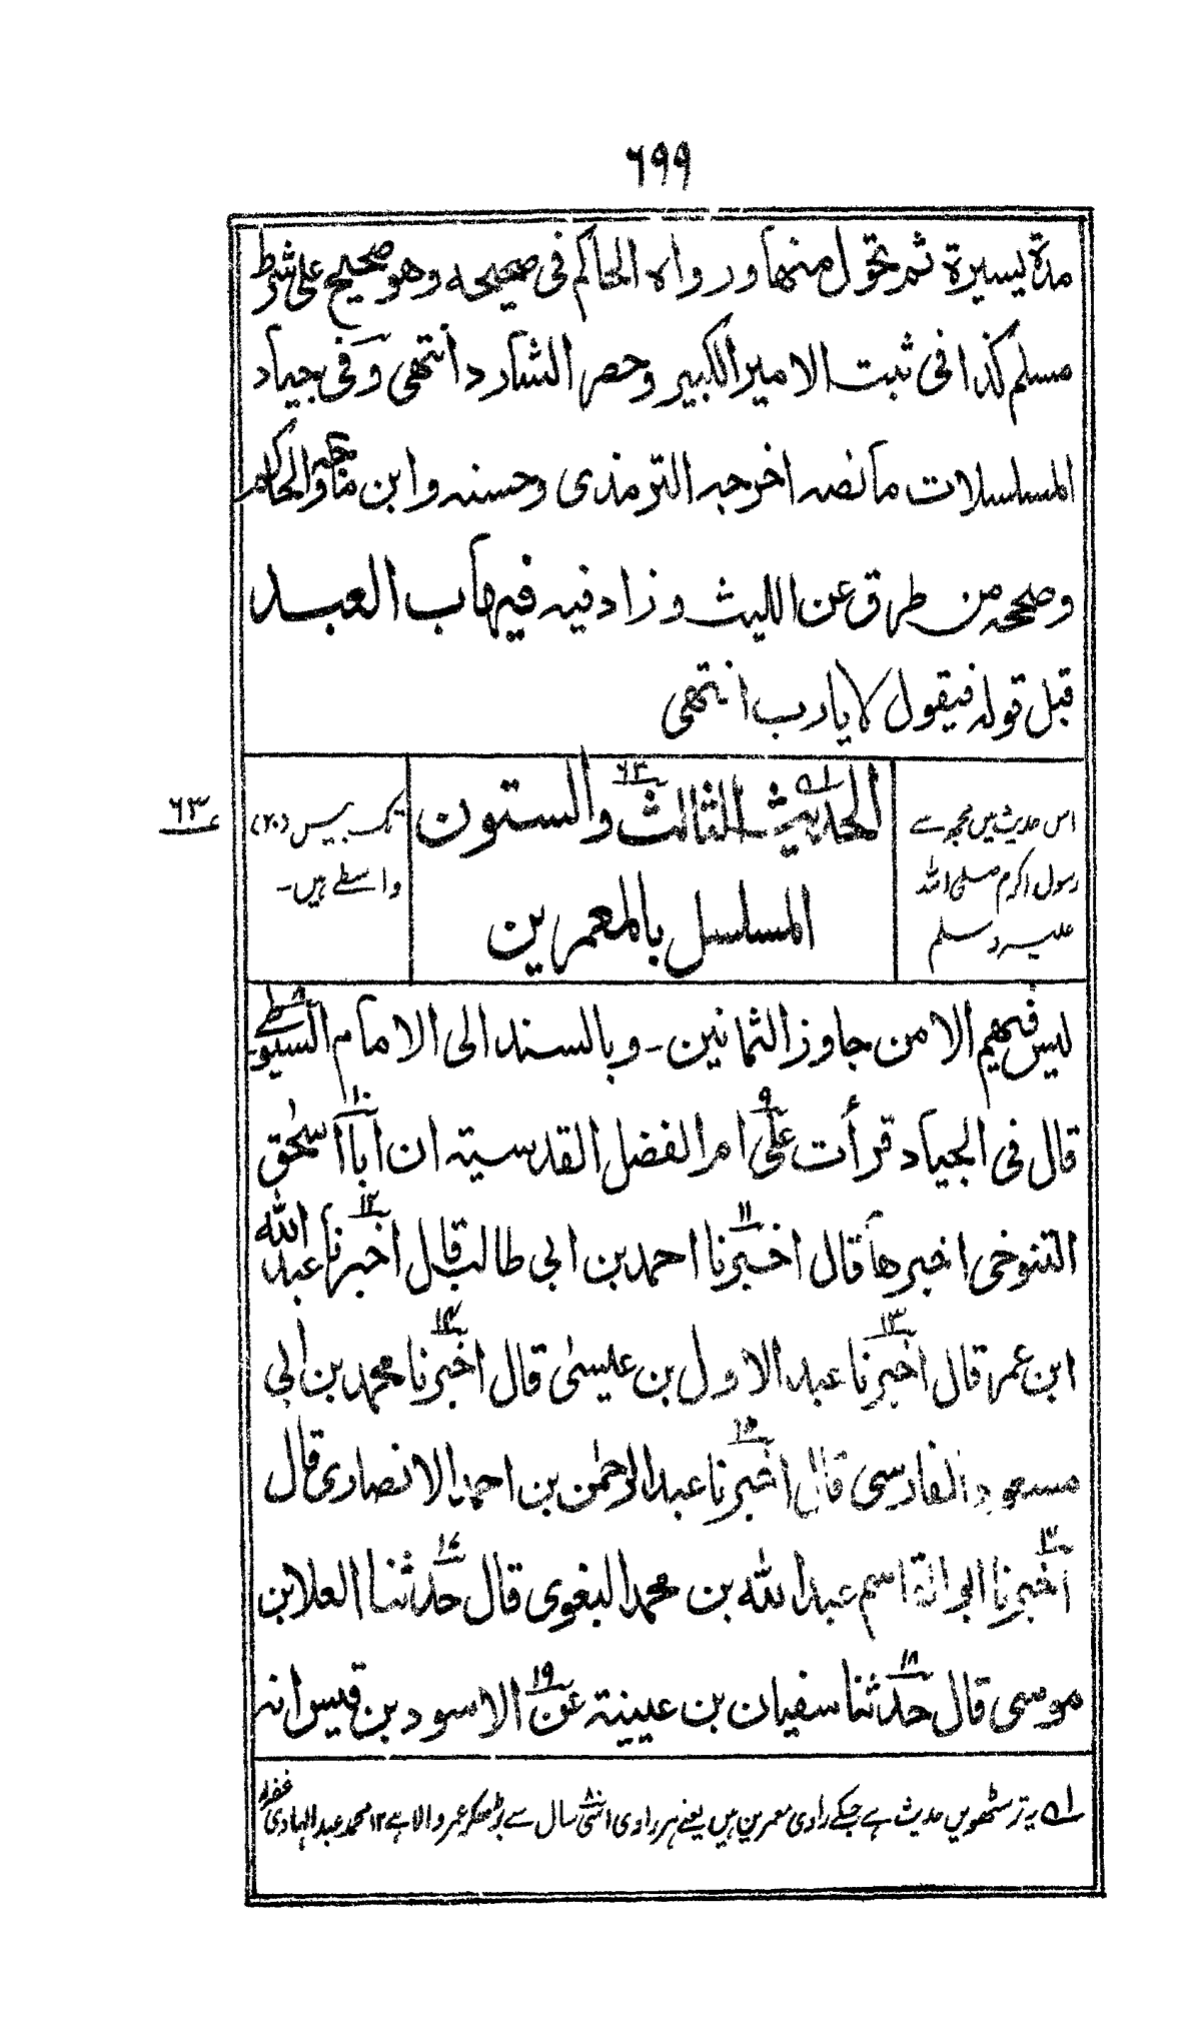 ٦٩٩
مدة يسيرة ثم تحول منها ورواه الحاكم فى صحيحه وهو صحيح على شرط
مسلم كذا فى ثبت الامير الكبير وحصر الشارد انتهى وفى جياد
المسلسلات ما نصه اخرجه الترمذى وحسنه وابن ماجه والحاكم
وصححه من طرق عن الليث وزاد فيه فيهاب العبد
قبل قوله فيقول لا يارب انتهى
الحديث الثالث والستون
المسلسل بالمعمرين
٦٣
١ے
اس حدیث میں مجھ سے
رسول اکرم صلی اللہ
علیہ وسلم
تک بیس (۲۰)
واسطے ہیں۔
٦٣
ليس فيهم الا من جاوز الثمانين ۔ وبالسند الى الامام السيوطى ٨
قال فى الجياد قرأت على ٩ ام الفضل القدسية ان ١٠ ابا اسحق
التنوخى اخبرها قال اخبرنا ١١ احمد بن ابى طالب قال اخبرنا ١٢ عبد الله
ابن عمر قال اخبرنا ١٣ عبد الاول بن عيسىٰ قال اخبرنا ١٤ محمد بن ابى
مسعود الفارسى قال اخبرنا ١٥ عبد الرحمٰن بن احمد الانصارى قال
اخبرنا ابو القاسم عبد الله بن محمد البغوى قال حدثنا ١٧ العلا بن
موسى قال حدثنا ١٨ سفيان بن عيينة عن ١٩ الاسود بن قيس انه
١ے یہ ترسٹھویں حدیث ہے جسکے راوی معمرین ہیں یعنے ہر راوی اسّی سال سے بڑھکر عمر والا ہے ١٢ محمد عبد الہادی غفرلہ